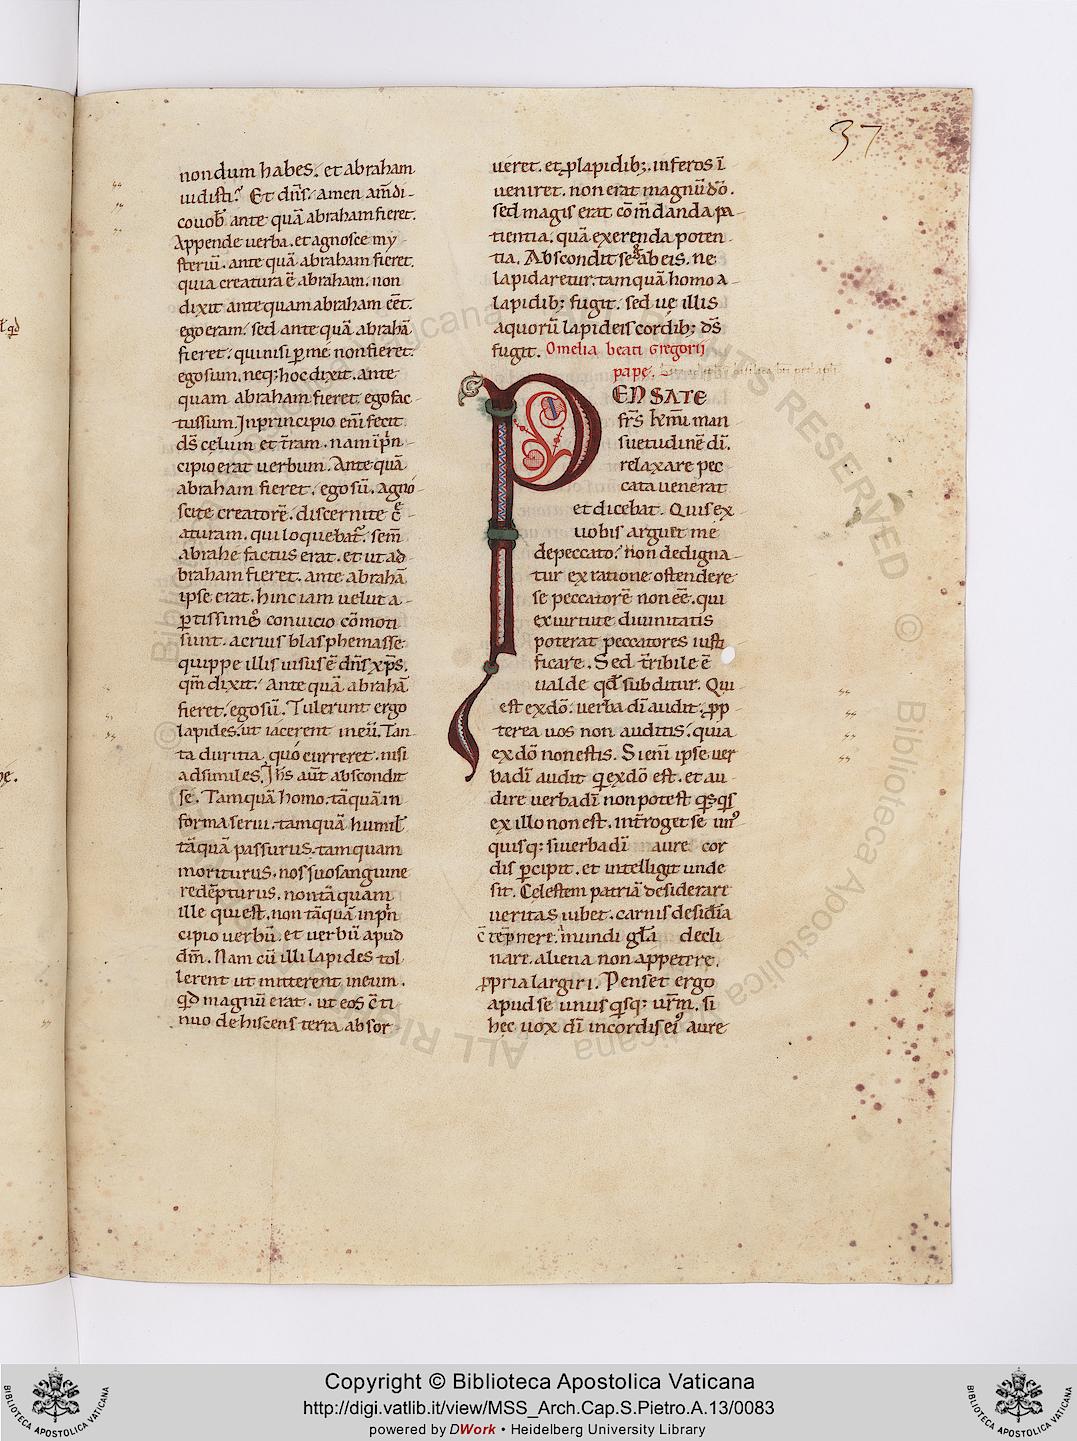 37
nondum habes. et abraham
uidisti? Et dn̄s. amen am̄ di-
co uob̄. ante quā abraham fieret.
Appende uerba. et agnosce my
steriū. ante quā abraham fieret.
quia creatura ē abraham. non
dixit antequam abraham eēt.
ego eram. sed ante quā abrahā
fieret. qui nisi p̱ me non fieret.
ego sum. neq; hoc dixit. ante
quam abraham fieret ego fac-
tus sum. In principio enī fecit
ds̄ celum et t̄ram. nam ī pⁱn
cipio erat uerbum. Ante quā
abraham fieret. ego sū. Agno
scite creatorē. discernite c̄e
aturam. qui loquebat̄. sem̄
abrahe factus erat. et ut ad
braham fieret. ante abrahā
ipse erat. hinc iam uelut a-
p̱tissimoꝰ conuicio cōmoti
sunt. acrius blasphemasse
quippe illis uisus ē dn̄s xp̄s.
qm̄ dixit. Ante quā abrahā
fieret. ego sū. Tulerunt ergo
lapides. ut iacerent in eū. Tan
ta duritia quo curreret. nisi
ad similes. Ih̄s aūt abscondit
se. Tamquā homo. tāquā in
forma serui. tamquā humil̄
tāquā passurus. tamquam
moriturus. nos suo sanguine
redēpturus. non tāquam
ille qui est. non tāquā in pⁱn
cipio uerbū. et uerbū apud
dm̄. Nam cū illi lapides tol
lerent ut mitterent in eum.
qd̄ magnū erat. ut eos c̄ti
nuo dehiscens terra absor
ueret. et ꝓ lapidib;. inferos ī
ueniret. non erat magnū dō.
sed magis erat cōm̄danda pa-
tientia. quā exerenda poten-
tia. Abscondit se g̊ ab eis. ne
lapidaretur. tamquā homo a-
lapidib; fugit. sed ue illis
a quorū lapideis cordib; ds̄
fugit. Omelia beati Gregorii
pape.
PENSATE
fr̄s km̄i man
suetudinē dī.
relaxare pec
cata uenerat
et dicebat. Quis ex
uobis arguet me
de peccato? Non dedigna-
tur ex ratione ostendere
se peccatorē non eē. qui
ex uirtute diuinitatis
poterat peccatores iusti
ficare. Sed t̄ribile ē
ualde qd̄ subditur. Qui
est ex dō. uerba dī audit. ꝓp
terea uos non auditis. quia
ex dō non estis. Si enī ipse uer
ba dī audit q̄ ex dō est. et au-
dire uerba dī non potest q̄sq̄s
ex illo non est. int̄roget se unꝰ
quisq; si uerba dī aure cor
dis p̱cipit. et intelligit unde
sit. Celestem patriā desiderare
ueritas iubet. carnis desid̄ia
c̄tēpnere. mundi gl̄a decli
nare. aliena non appetere.
ꝓpria largiri. Penset ergo
apud se unus q̄sq; ur̄m. si
hec uox dī in cordis eiꝰ aure
Copyright © Biblioteca Apostolica Vaticana
http://digi.vatlib.it/view/MSS_Arch.Cap.S.Pietro.A.13/0083
powered by DWork • Heidelberg University Library
BIBLIOTECA APOSTOLICA VATICANA
BIBLIOTECA APOSTOLICA VATICANA